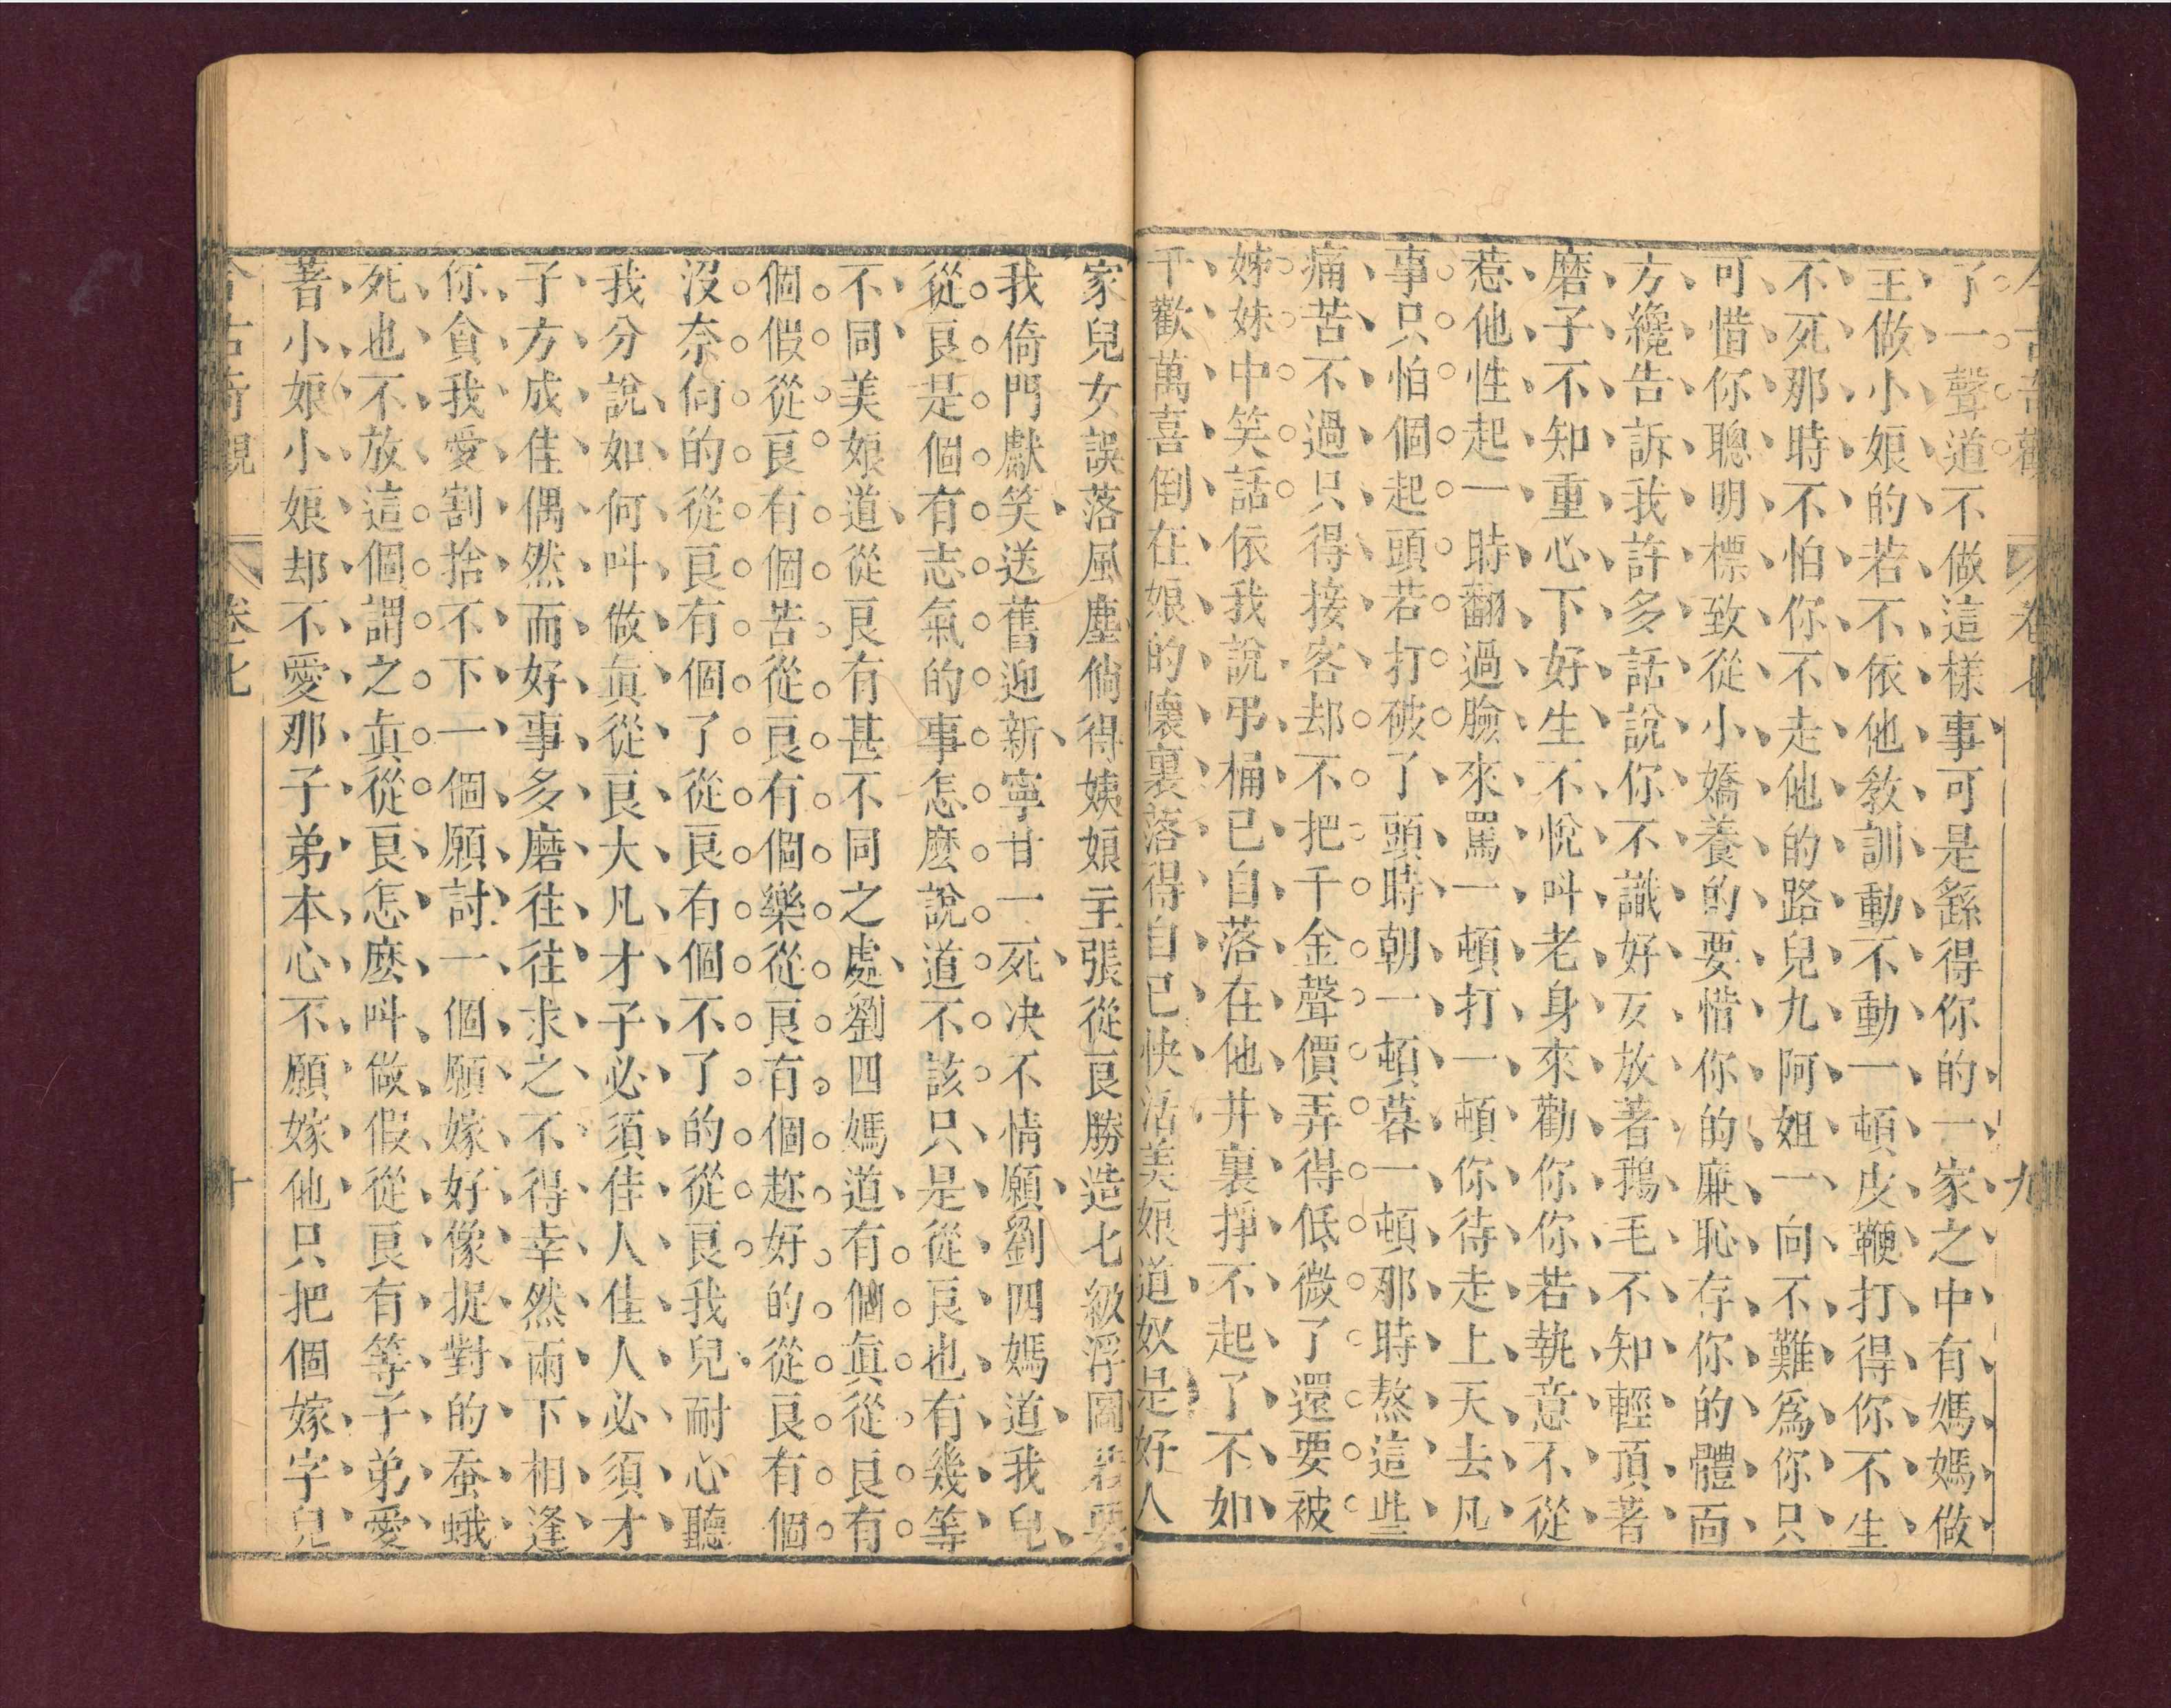 今古奇觀 卷七 九
了一聲道不做這樣事可是繇得你的一家之中有媽媽做
主做小娘的若不依他教訓動不動一頓皮鞭打得你不生
不死那時不怕你不走他的路兒九阿姐一向不難爲你只
可惜你聰明標致從小嬌養的要惜你的廉恥存你的體面
方纔告訴我許多話說你不識好歹放著鵝毛不知輕頂著
磨子不知重心下好生不悅叫老身來勸你你若執意不從
惹他性起一時翻過臉來罵一頓打一頓你待走上天去凡
事只怕個起頭若打破了頭時朝一頓暮一頓那時熬這些
痛苦不過只得接客却不把千金聲價弄得低微了還要被
姊妹中笑話依我說弔桶已自落在他井裏掙不起了不如
千歡萬喜倒在娘的懷裏落得自己快活美娘道奴是好人
家兒女誤落風塵倘得姨娘主張從良勝造七級浮圖若要
我倚門獻笑送舊迎新寧甘一死決不情願劉四媽道我兒
從良是個有志氣的事怎麽說道不該只是從良也有幾等
不同美娘道從良有甚不同之處劉四媽道有個眞從良有
個假從良有個苦從良有個樂從良有個趂好的從良有個
沒奈何的從良有個了從良有個不了的從良我兒耐心聽
我分說如何叫做眞從良大凡才子必須佳人佳人必須才
子方成佳偶然而好事多磨往往求之不得幸然兩下相逢
你貪我愛割捨不下一個願討一個願嫁好像捉對的蚕蛾
死也不放這個謂之眞從良怎麽叫做假從良有等子弟愛
著小娘小娘却不愛那子弟本心不願嫁他只把個嫁字兒
今古奇觀 卷七 十